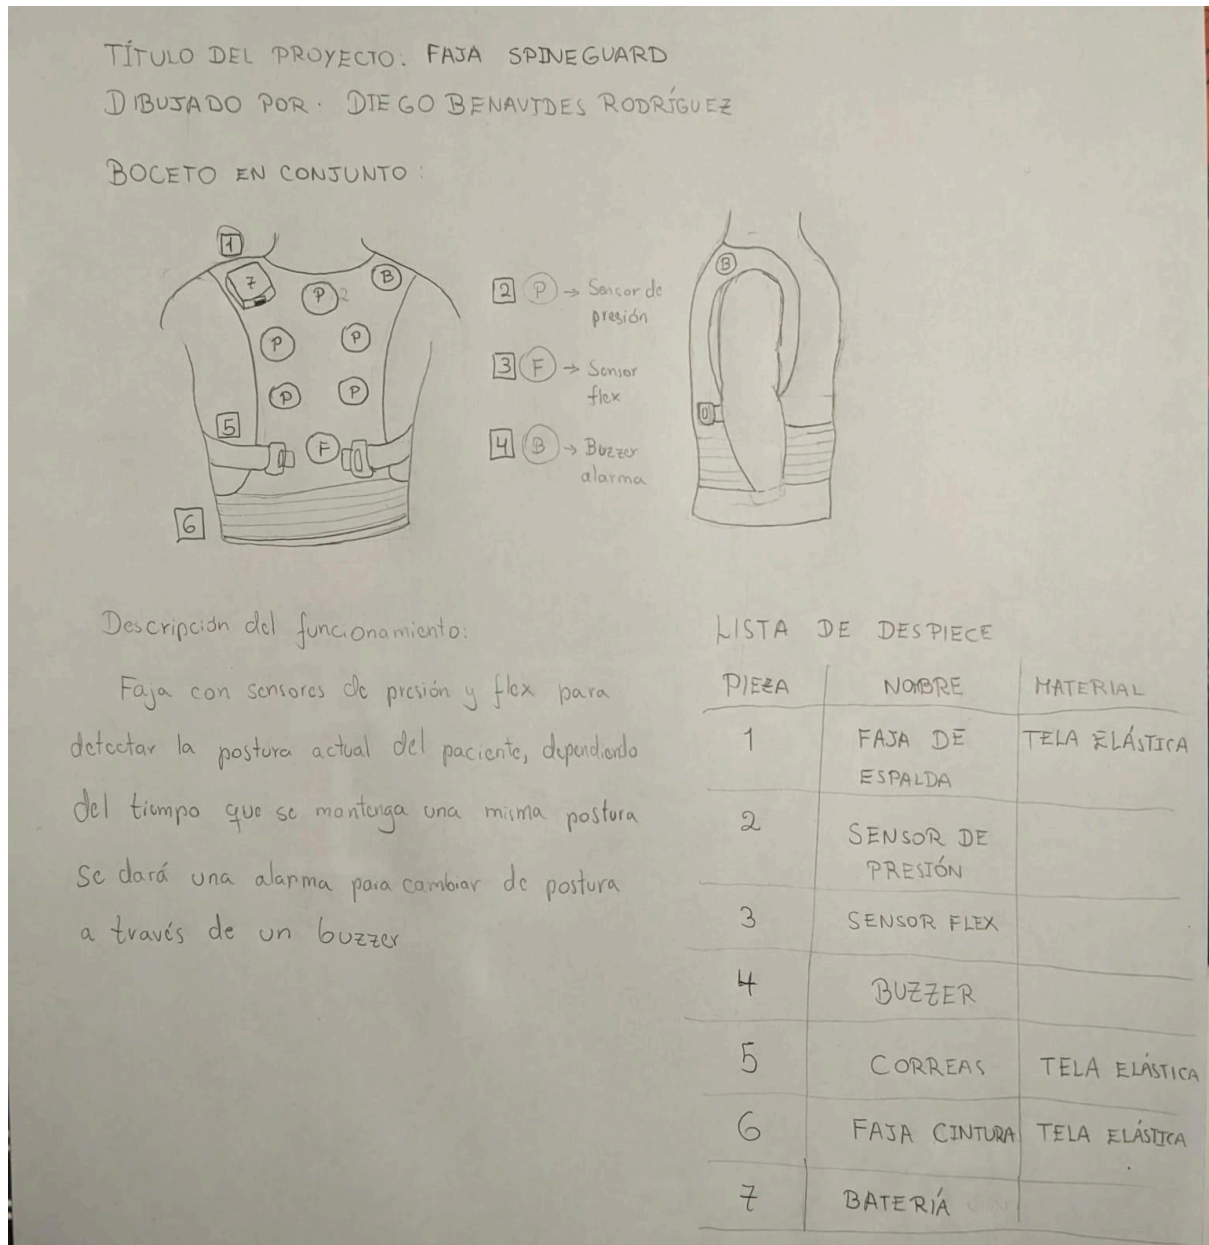 TÍTULO DEL PROYECTO: FAJA SPINEGUARD
DIBUJADO POR: DIEGO BENAVIDES RODRÍGUEZ
BOCETO EN CONJUNTO:
1
7
B
P 2
P
P
P
P
5
F
6
2 P → Sensor de
presión
3 F → Sensor
flex
4 B → Buzzer
alarma
B
Descripción del funcionamiento:
Faja con sensores de presión y flex para
detectar la postura actual del paciente, dependiendo
del tiempo que se mantenga una misma postura
se dará una alarma para cambiar de postura
a través de un buzzer
LISTA DE DESPIECE
PIEZA NOMBRE MATERIAL
1 FAJA DE TELA ELÁSTICA
ESPALDA
2 SENSOR DE
PRESIÓN
3 SENSOR FLEX
4 BUZZER
5 CORREAS TELA ELÁSTICA
6 FAJA CINTURA TELA ELÁSTICA
7 BATERÍA